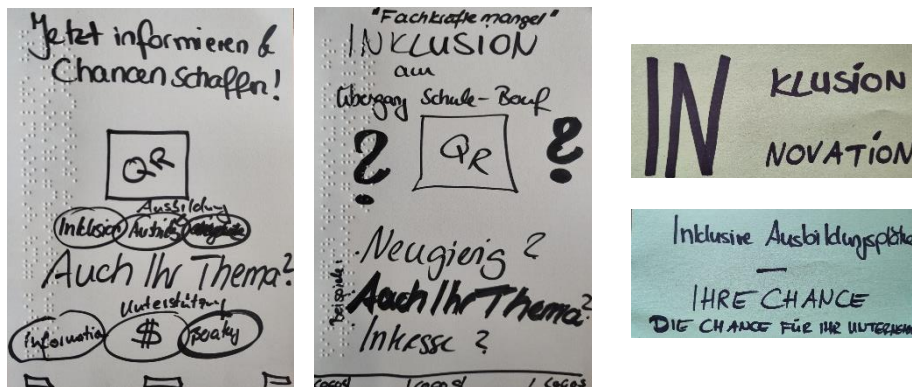 Jetzt informieren &
Chancen schaffen!
QR
Ausbildung
Inklusion
Auch Ihr Thema?
Unterstützung
Information $
"Fachkräftemangel"
INKLUSION
am
Übergang Schule-Beruf
? QR ?
Neugierig?
Beispiele:
Auch Ihr Thema?
Logos! Logos! Logos
IN KLUSION
NOVATION
Inklusive Ausbildungsplätze
–
IHRE CHANCE
DIE CHANCE FÜR IHR UNTERNEHM